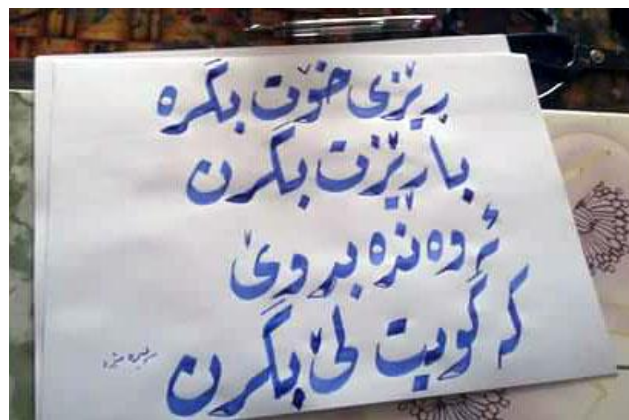 ڕێزی خۆت بگرە
با ڕێزت بگرن
ئەوەندە بدوێ
کە گوێت لێ بگرن